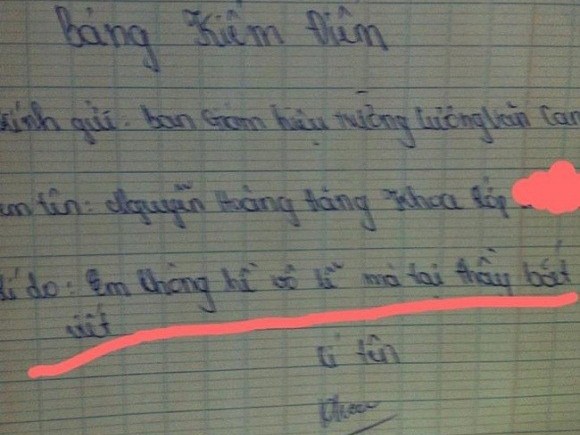 Bảng Kiểm Điểm
kính gửi: ban Giám hiệu trường Lương Văn Can
em tên: Nguyễn Hoàng Đăng Khoa lớp
Lí do: Em không hề vô lễ mà tại thầy bắt
viết
kí tên
Khoa